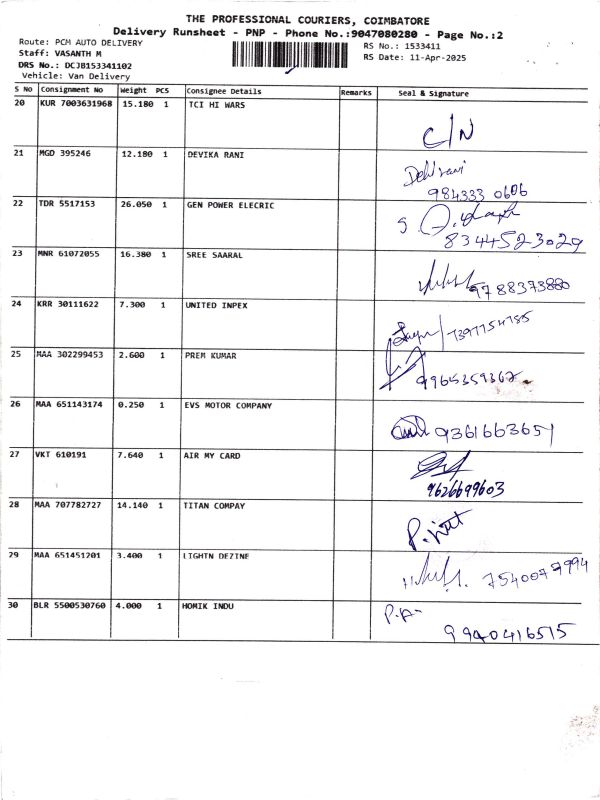 THE PROFESSIONAL COURIERS, COIMBATORE
Delivery Runsheet - PNP - Phone No.:9047080280 - Page No.:2
Route: PCM AUTO DELIVERY
RS No.: 1533411
Staff: VASANTH M
RS Date: 11-Apr-2025
DRS No.: DCJB153341102
Vehicle: Van Delivery
S No Consignment No Weight PCS Consignee Details Remarks Seal & Signature
20 KUR 7003631968 15.180 1 TCI HI WARS
C/N
21 MGD 395246 12.180 1 DEVIKA RANI
984333 0606
22 TDR 5517153 26.050 1 GEN POWER ELECRIC
8344523029
23 MNR 61072055 16.380 1 SREE SAARAL
9788373880
24 KRR 30111622 7.300 1 UNITED INPEX
7397754785
25 MAA 302299453 2.600 1 PREM KUMAR
9965359362
26 MAA 651143174 0.250 1 EVS MOTOR COMPANY
9361663651
27 VKT 610191 7.640 1 AIR MY CARD
9626699603
28 MAA 707782727 14.140 1 TITAN COMPAY
29 MAA 651451201 3.400 1 LIGHTN DEZINE
7540079994
30 BLR 5500530760 4.000 1 HOMIK INDU
9940416515